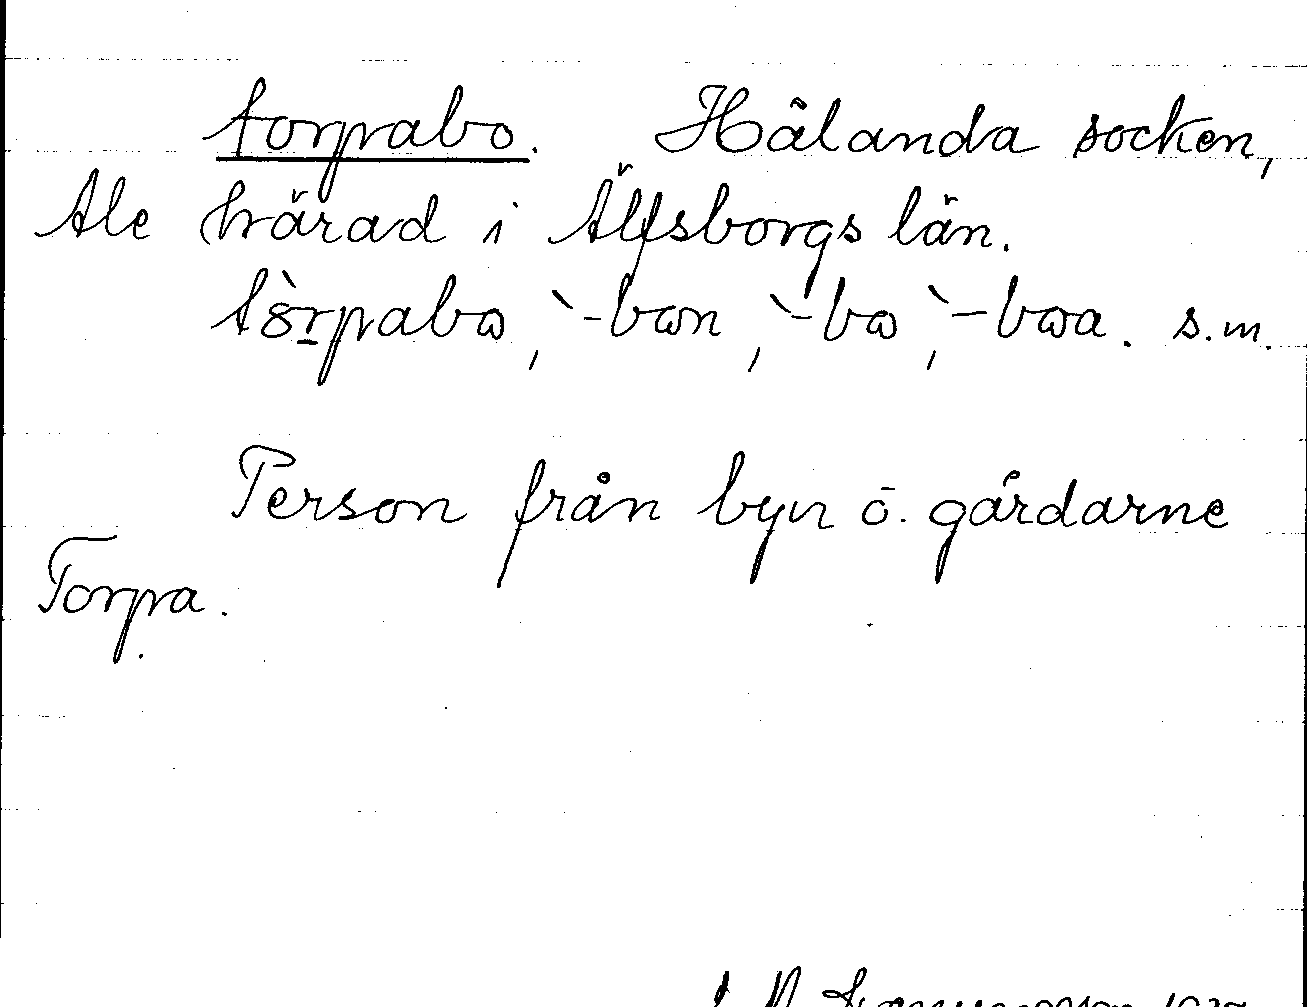 torpabo. Hålanda socken,
Ale härad i Älfsborgs län.
tòrpabω, `-bωn, `-bω, `-bωa. s.m.
Person från byn o. gårdarne
Torpa.